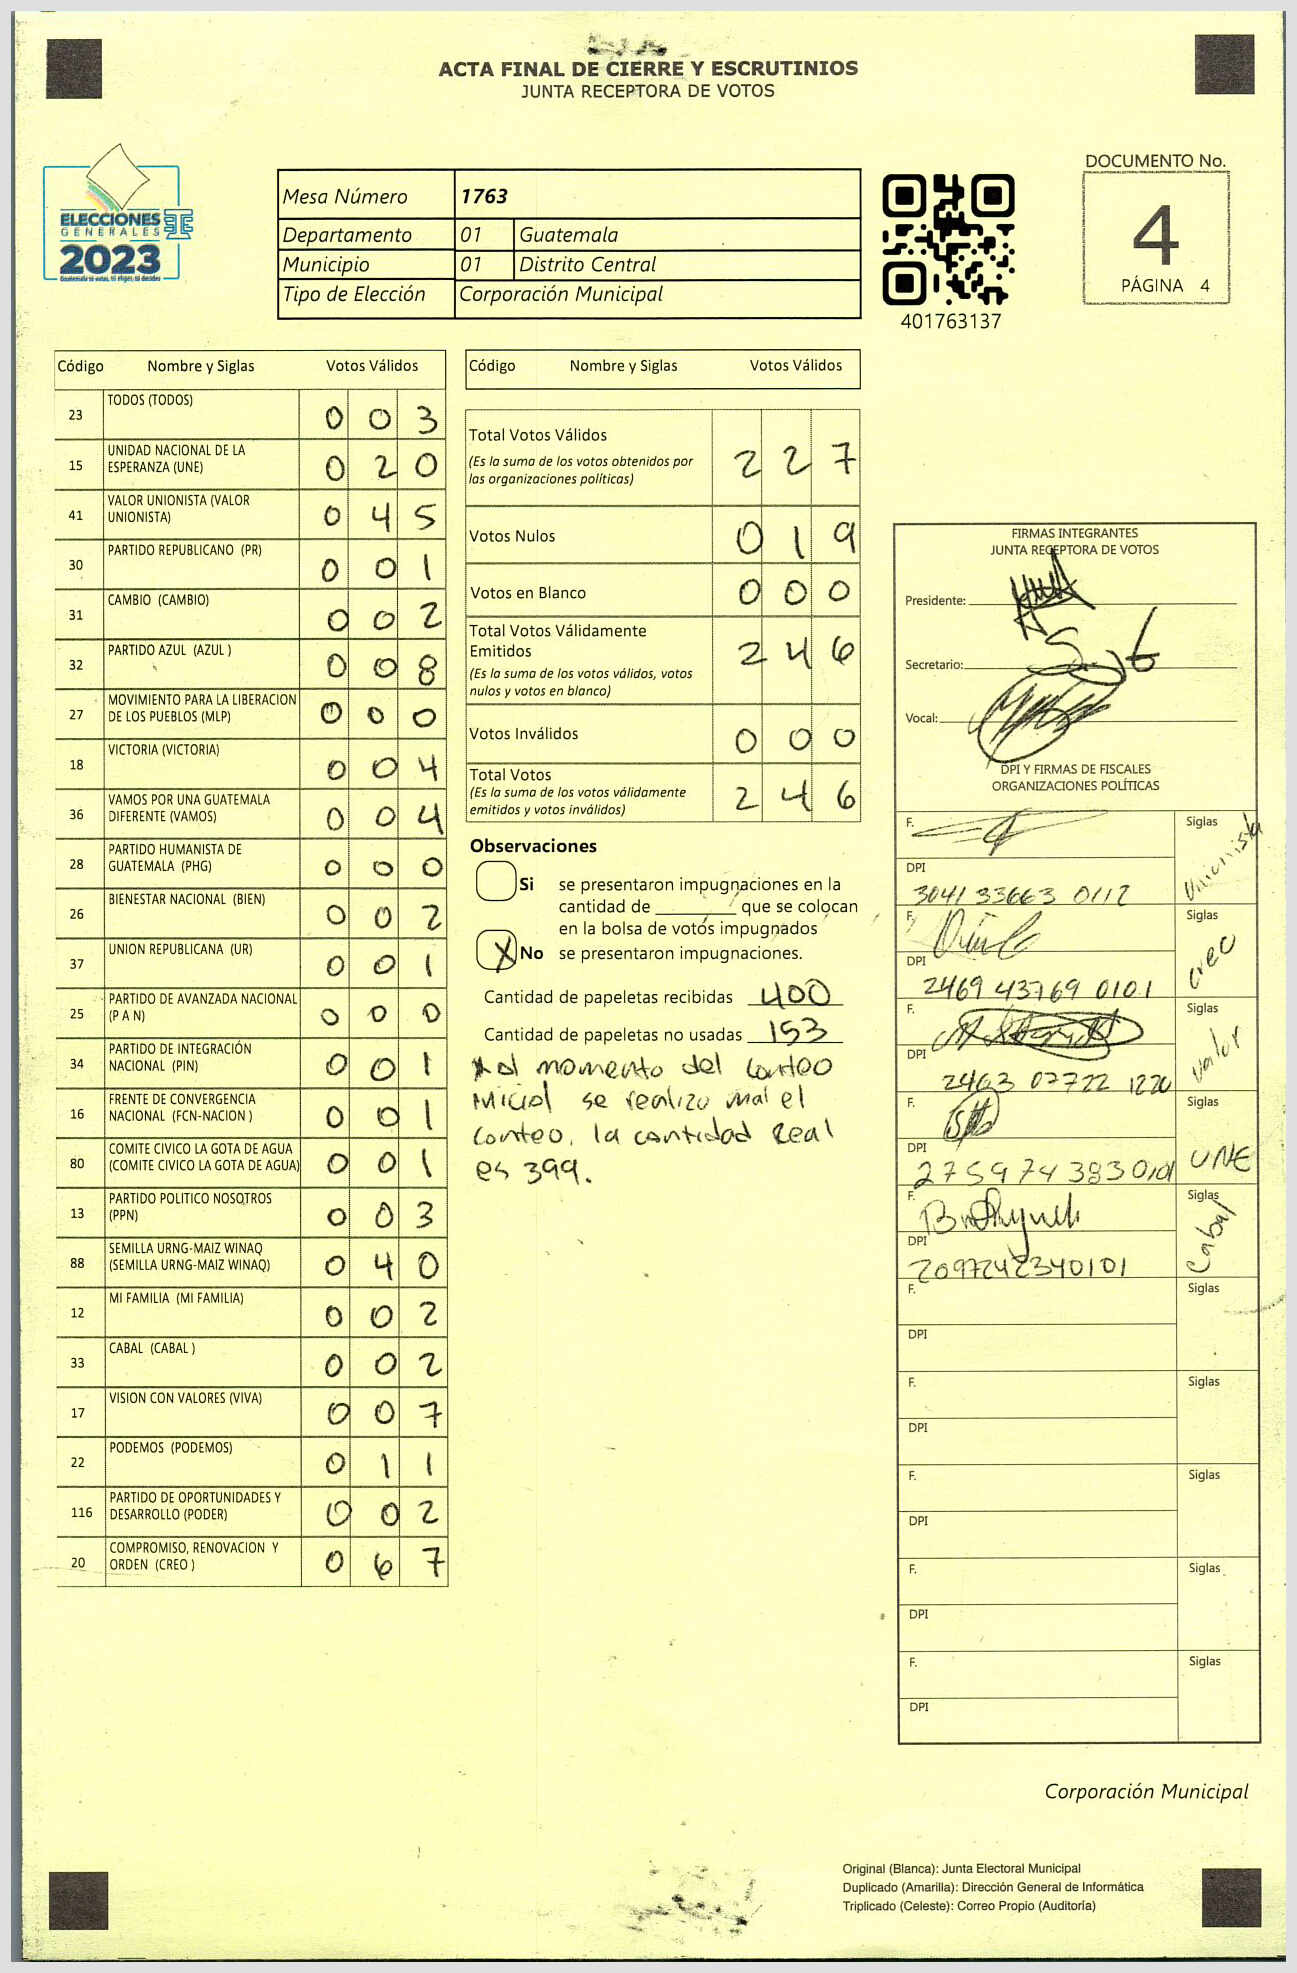 ACTA FINAL DE CIERRE Y ESCRUTINIOS
JUNTA RECEPTORA DE VOTOS
ELECCIONES
GENERALES
2023
Mesa Número 1763
Departamento 01 Guatemala
Municipio 01 Distrito Central
Tipo de Elección Corporación Municipal
401763137
DOCUMENTO No.
4
PÁGINA 4
Código Nombre y Siglas Votos Válidos
23 TODOS (TODOS) 0 0 3
15 UNIDAD NACIONAL DE LA
ESPERANZA (UNE) 0 2 0
41 VALOR UNIONISTA (VALOR
UNIONISTA) 0 4 5
30 PARTIDO REPUBLICANO (PR) 0 0 1
31 CAMBIO (CAMBIO) 0 0 2
32 PARTIDO AZUL (AZUL ) 0 0 8
27 MOVIMIENTO PARA LA LIBERACION
DE LOS PUEBLOS (MLP) 0 0 0
18 VICTORIA (VICTORIA) 0 0 4
36 VAMOS POR UNA GUATEMALA
DIFERENTE (VAMOS) 0 0 4
28 PARTIDO HUMANISTA DE
GUATEMALA (PHG) 0 0 0
26 BIENESTAR NACIONAL (BIEN) 0 0 2
37 UNION REPUBLICANA (UR) 0 0 1
25 PARTIDO DE AVANZADA NACIONAL
(P A N) 0 0 0
34 PARTIDO DE INTEGRACIÓN
NACIONAL (PIN) 0 0 1
16 FRENTE DE CONVERGENCIA
NACIONAL (FCN-NACION ) 0 0 1
80 COMITE CIVICO LA GOTA DE AGUA
(COMITE CIVICO LA GOTA DE AGUA) 0 0 1
13 PARTIDO POLITICO NOSOTROS
(PPN) 0 0 3
88 SEMILLA URNG-MAIZ WINAQ
(SEMILLA URNG-MAIZ WINAQ) 0 4 0
12 MI FAMILIA (MI FAMILIA) 0 0 2
33 CABAL (CABAL ) 0 0 2
17 VISION CON VALORES (VIVA) 0 0 7
22 PODEMOS (PODEMOS) 0 1 1
116 PARTIDO DE OPORTUNIDADES Y
DESARROLLO (PODER) 0 0 2
20 COMPROMISO, RENOVACION Y
ORDEN (CREO ) 0 6 7
Código Nombre y Siglas Votos Válidos
Total Votos Válidos 2 2 7
(Es la suma de los votos obtenidos por
las organizaciones políticas)
Votos Nulos 0 1 9
Votos en Blanco 0 0 0
Total Votos Válidamente
Emitidos 2 4 6
(Es la suma de los votos válidos, votos
nulos y votos en blanco)
Votos Inválidos 0 0 0
Total Votos
(Es la suma de los votos válidamente
emitidos y votos inválidos) 2 4 6
Observaciones
Si se presentaron impugnaciones en la
cantidad de ________ que se colocan
en la bolsa de votos impugnados
X No se presentaron impugnaciones.
Cantidad de papeletas recibidas 400
Cantidad de papeletas no usadas 153
al momento del conteo
inicial se realizo mal el
conteo, la cantidad Real
es 399.
FIRMAS INTEGRANTES
JUNTA RECEPTORA DE VOTOS
Presidente:
Secretario:
Vocal:
DPI Y FIRMAS DE FISCALES
ORGANIZACIONES POLÍTICAS
F. Siglas Unionista
DPI
3041 33663 0112
F. Siglas creo
DPI
2469 43769 0101
F. Siglas Valor
DPI
2463 07722 1220
F. Siglas UNE
DPI
2759 74383 0101
F. Siglas Cabal
DPI
2097242340101
F. Siglas
DPI
F. Siglas
DPI
F. Siglas
DPI
F. Siglas
DPI
F. Siglas
DPI
Corporación Municipal
Original (Blanca): Junta Electoral Municipal
Duplicado (Amarilla): Dirección General de Informática
Triplicado (Celeste): Correo Propio (Auditoría)